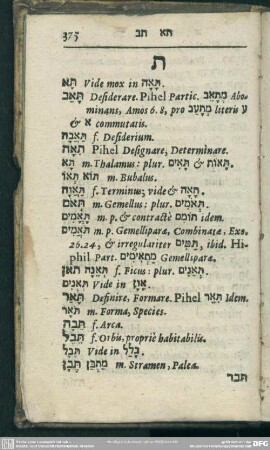 375 תא תב
ת
תָּא Vide mox in תָּאָה.
תָּאַב Desiderare. Pihel Partic. מְתָאֵב Abo-
minans, Amos 6.8, pro מְתָעֵב literis ע
& א commutatis.
תַּאֲבָה f. Desiderium.
תָּאָה Pihel Designare, Determinare.
תָּא m. Thalamus: plur. תָּאִים & תָּאוֹת.
תְּאוֹ תּוֹא m. Bubalus.
תַּאֲוָה f. Terminus; vide & תָּאָה.
תְּאֹם m. Gemellus: plur. תְּאֹמִים.
תְּאֹמִים m. p. & contractè תּוֹמִם idem.
תֹּאֲמִים m. p. Gemelliparæ, Combinatæ, Exo.
26.24; & irregulariter תַּמִּים, ibid. Hi-
phil Part. מַתְאִימִים Gemelliparæ.
תְּאֵנָה תאן f. Ficus: plur. תְּאֵנִים.
תְּאֻנִים Vide in אָוֶן.
תָּאַר Definire, Formare. Pihel תֵּאֵר Idem.
תֹּאַר m. Forma, Species.
תֵּבָה f. Arca.
תֵּבֵל f. Orbis, propriè habitabilis.
תֶּבֶל Vide in בָּלַל.
תֶּבֶן מַתְבֵּן m. Stramen, Palea.
תבר